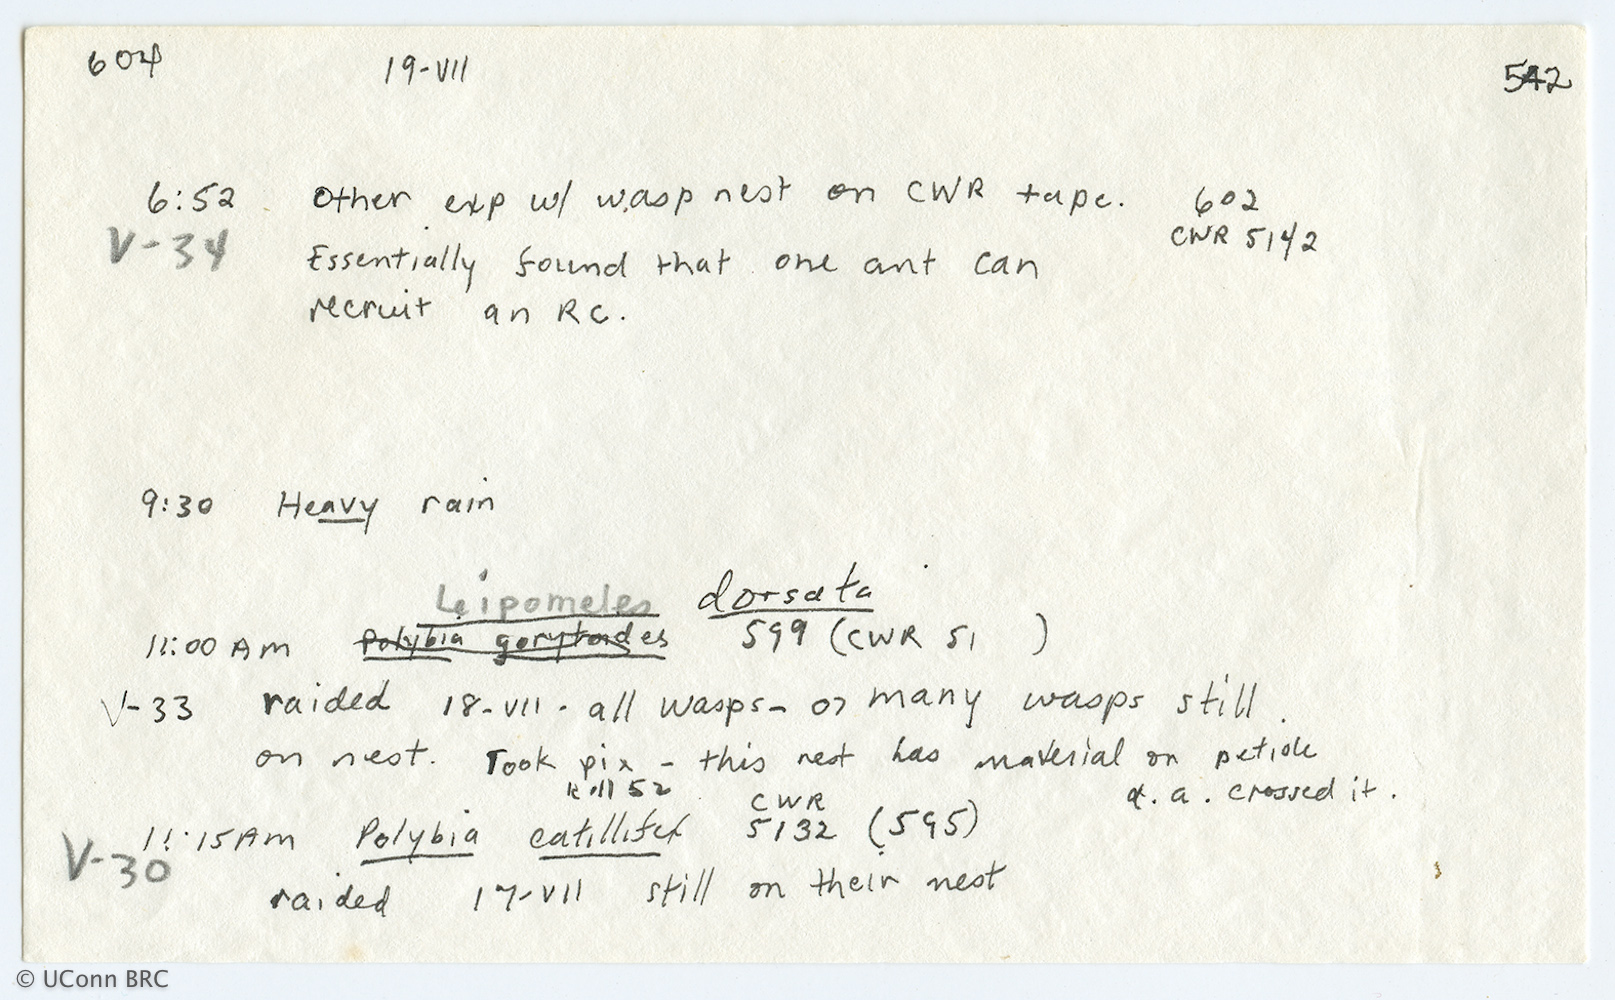 604 19-VII 542
6:52 Other exp w/ wasp nest on CWR tape. 602
V-34 CWR 5142
Essentially found that one ant can
recruit an RC.
9:30 Heavy rain
Leipomeles dorsata
11:00 AM Polybia gorytoides 599 (CWR 51 )
V-33 raided 18-VII - all wasps - or many wasps still
on nest. Took pix - this nest has material on petiole
Roll 52 &. a. crossed it.
CWR
11:15 AM Polybia catillifex 5132 (595)
V-30
raided 17-VII still on their nest
© UConn BRC